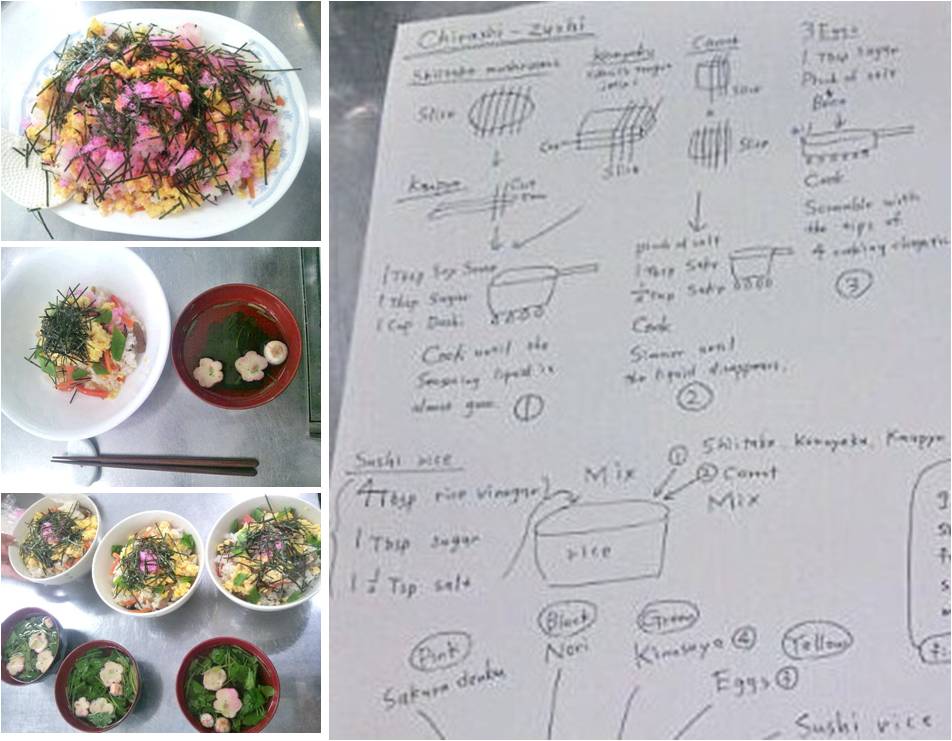 Chirashi-Zushi
Shiitake mushrooms
Slice
Kanpyo
Cut
1 Tbsp Soy Sauce
1 Tbsp Sugar
1 Cup Dashi
Cook until the
Seasoning liquid is
almost gone. ①
Konnyaku
Slice
Carrot
Slice
Slice
pinch of salt
1 Tbsp Sake
Cook
Simmer until
the liquid disappears.
②
3 Eggs
1 Tbsp Sugar
Pinch of salt
Cook
Scramble with
the tips of
4 cooking
③
Sushi rice
4 Tbsp rice vinegar
1 Tbsp sugar
1 1/2 Tsp salt
Mix
rice
① Shiitake, Konnyaku, Kanpyo
② Carrot
Mix
Pink
Sakura denbu
Black
Nori
Green
Kinusaya ④
Yellow
Eggs ③
Sushi rice